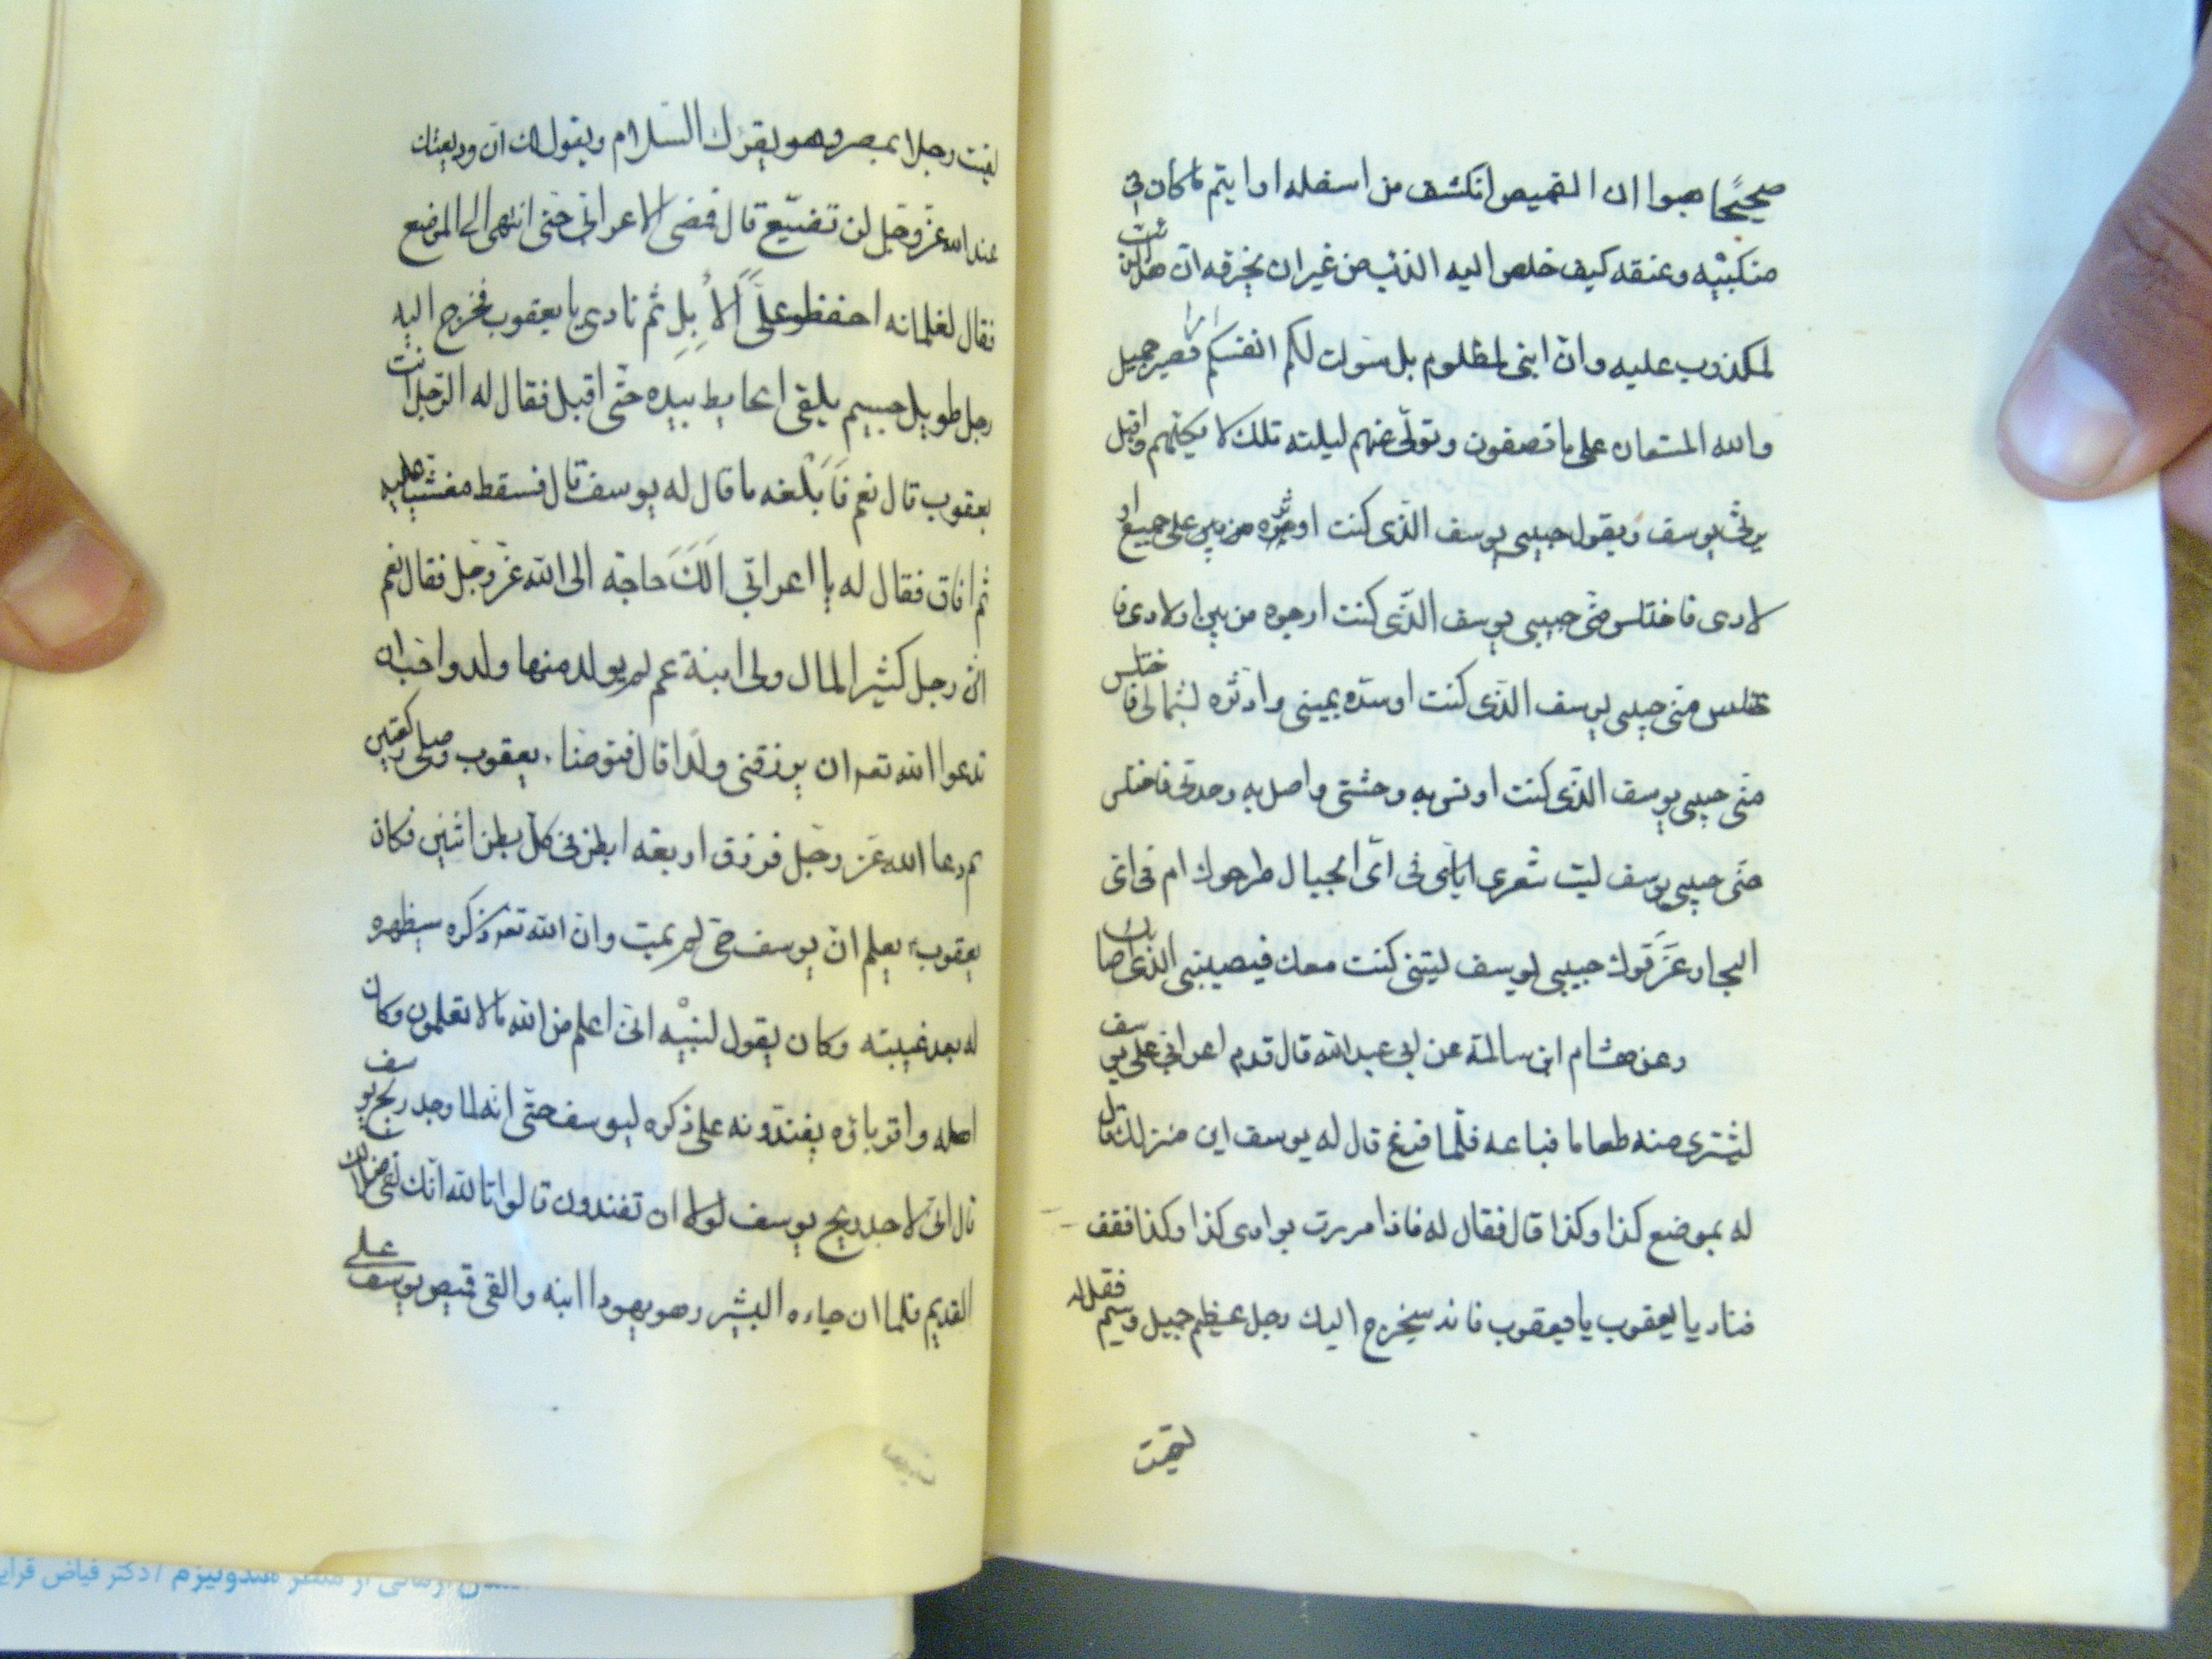 صحیحًا هبوا ان القمیص انکشف من اسفله ا و ا یتم ما کان فی
منکبیه و عنقه کیف خلص الیه الذئب من غیر ان یخرقه ان هذا الذئب
لمکذوب علیه و انّ ابنی لمظلوم بل سولت لکم انفسکم امرا فصبر جمیل
و الله المستعان علی ما تصفون و تولّی عنهم لیلته تلک لا یکلّمهم و اقبل
یرثی یوسف و یقول حبیبی یوسف الذّی کنت اوثره من بین علی جمیع او
لادی فاختلس منّی حبیبی یوسف الذّی کنت ارجوه من بین اولادی فا
ختلس منّی حبیبی یوسف الذّی کنت اوسّده یمینی و ادثّره لشمالی فا
ختلس
منّی حبیبی یوسف الذّی کنت اونس به وحشتی و اصل به وحدتی فاختلس
منّی حبیبی یوسف لیت شعری فی ایّ الجبال طرحوک ام فی ایّ
البحار غَرَّقوک حبیبی یوسف لیتنی کنت معک فیصیبنی الذّی اصابک
و عن هشام ابن سالمة عن ابی عبدالله قال قدم اعرابی علی یوسف
لیشتری منه طعاما فباعه فلمّا فرغ قال له یوسف این منزلک قال
له بموضع کذا و کذا قال فقال له فاذا مررت بوادی کذا و کذا فقف
فناد یا یعقوب یا یعقوب فانه سیخرج الیک رجل عظیم جمیل وسیم فقل له
لقیت
لقیت رجلا بمصر و هو یقرئک السّلام و یقول لک انّ ودیعتک
عند الله عزّ و جلّ لن تضیّع قال فمضی الاعرابی حتی انتهی الی الموضع
فقال لغلمانه احفظو علیَّ الأِبِلِ ثم نادی یا یعقوب فخرج الیه
رجل طویل جسیم یلقی الحایط بیده حتّی اقبل فقال له الرّجل انت
یعقوب قال نعم فَاَبْلَغه ما قال له یوسف قال فسقط مغشیا علیه
ثم افاق فقال له یا اعرابی اَلَکَ حاجة الی الله عزّ و جلّ فقال نعم
انّی رجل کثیر المال ولی ابنة عم لم یولد منها ولد و احبّ ان
تدعوا الله تعـ ان یرزقنی ولدًا قال فتوضّأ یعقوب و صلی رکعتین
ثم دعا الله عزّ و جلّ فرزق اربعة ابطن فی کلّ بطن اثنین و کان
یعقوب یعلم انّ یوسف حیّ لم یمت و انّ الله تعـ ذکره سیظهره
له بعد غیبته و کان یقول لبنیْه انّی اعلم من الله ما لا تعلمون و کان
اهله و اقرباؤه یفنّدونه علی ذکره لیوسف حتّی انّه لما وجد ریح یوسف
قال انّی لاجد ریح یوسف لولا ان تفندون قالوا تالله انّک لفی ضلالک
القدیم فلما ان جاءه البشیر و هو یهودا ابنه و القی قمیص یوسف علی